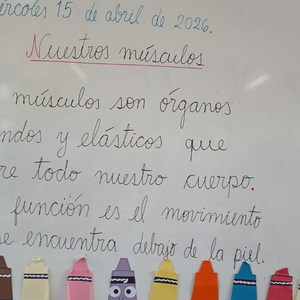 ércoles 15 de abril de 2026.
Nuestros músculos
músculos son órganos
ndos y elásticos que
re todo nuestro cuerpo.
función es el movimiento
se encuentra debajo de la piel.